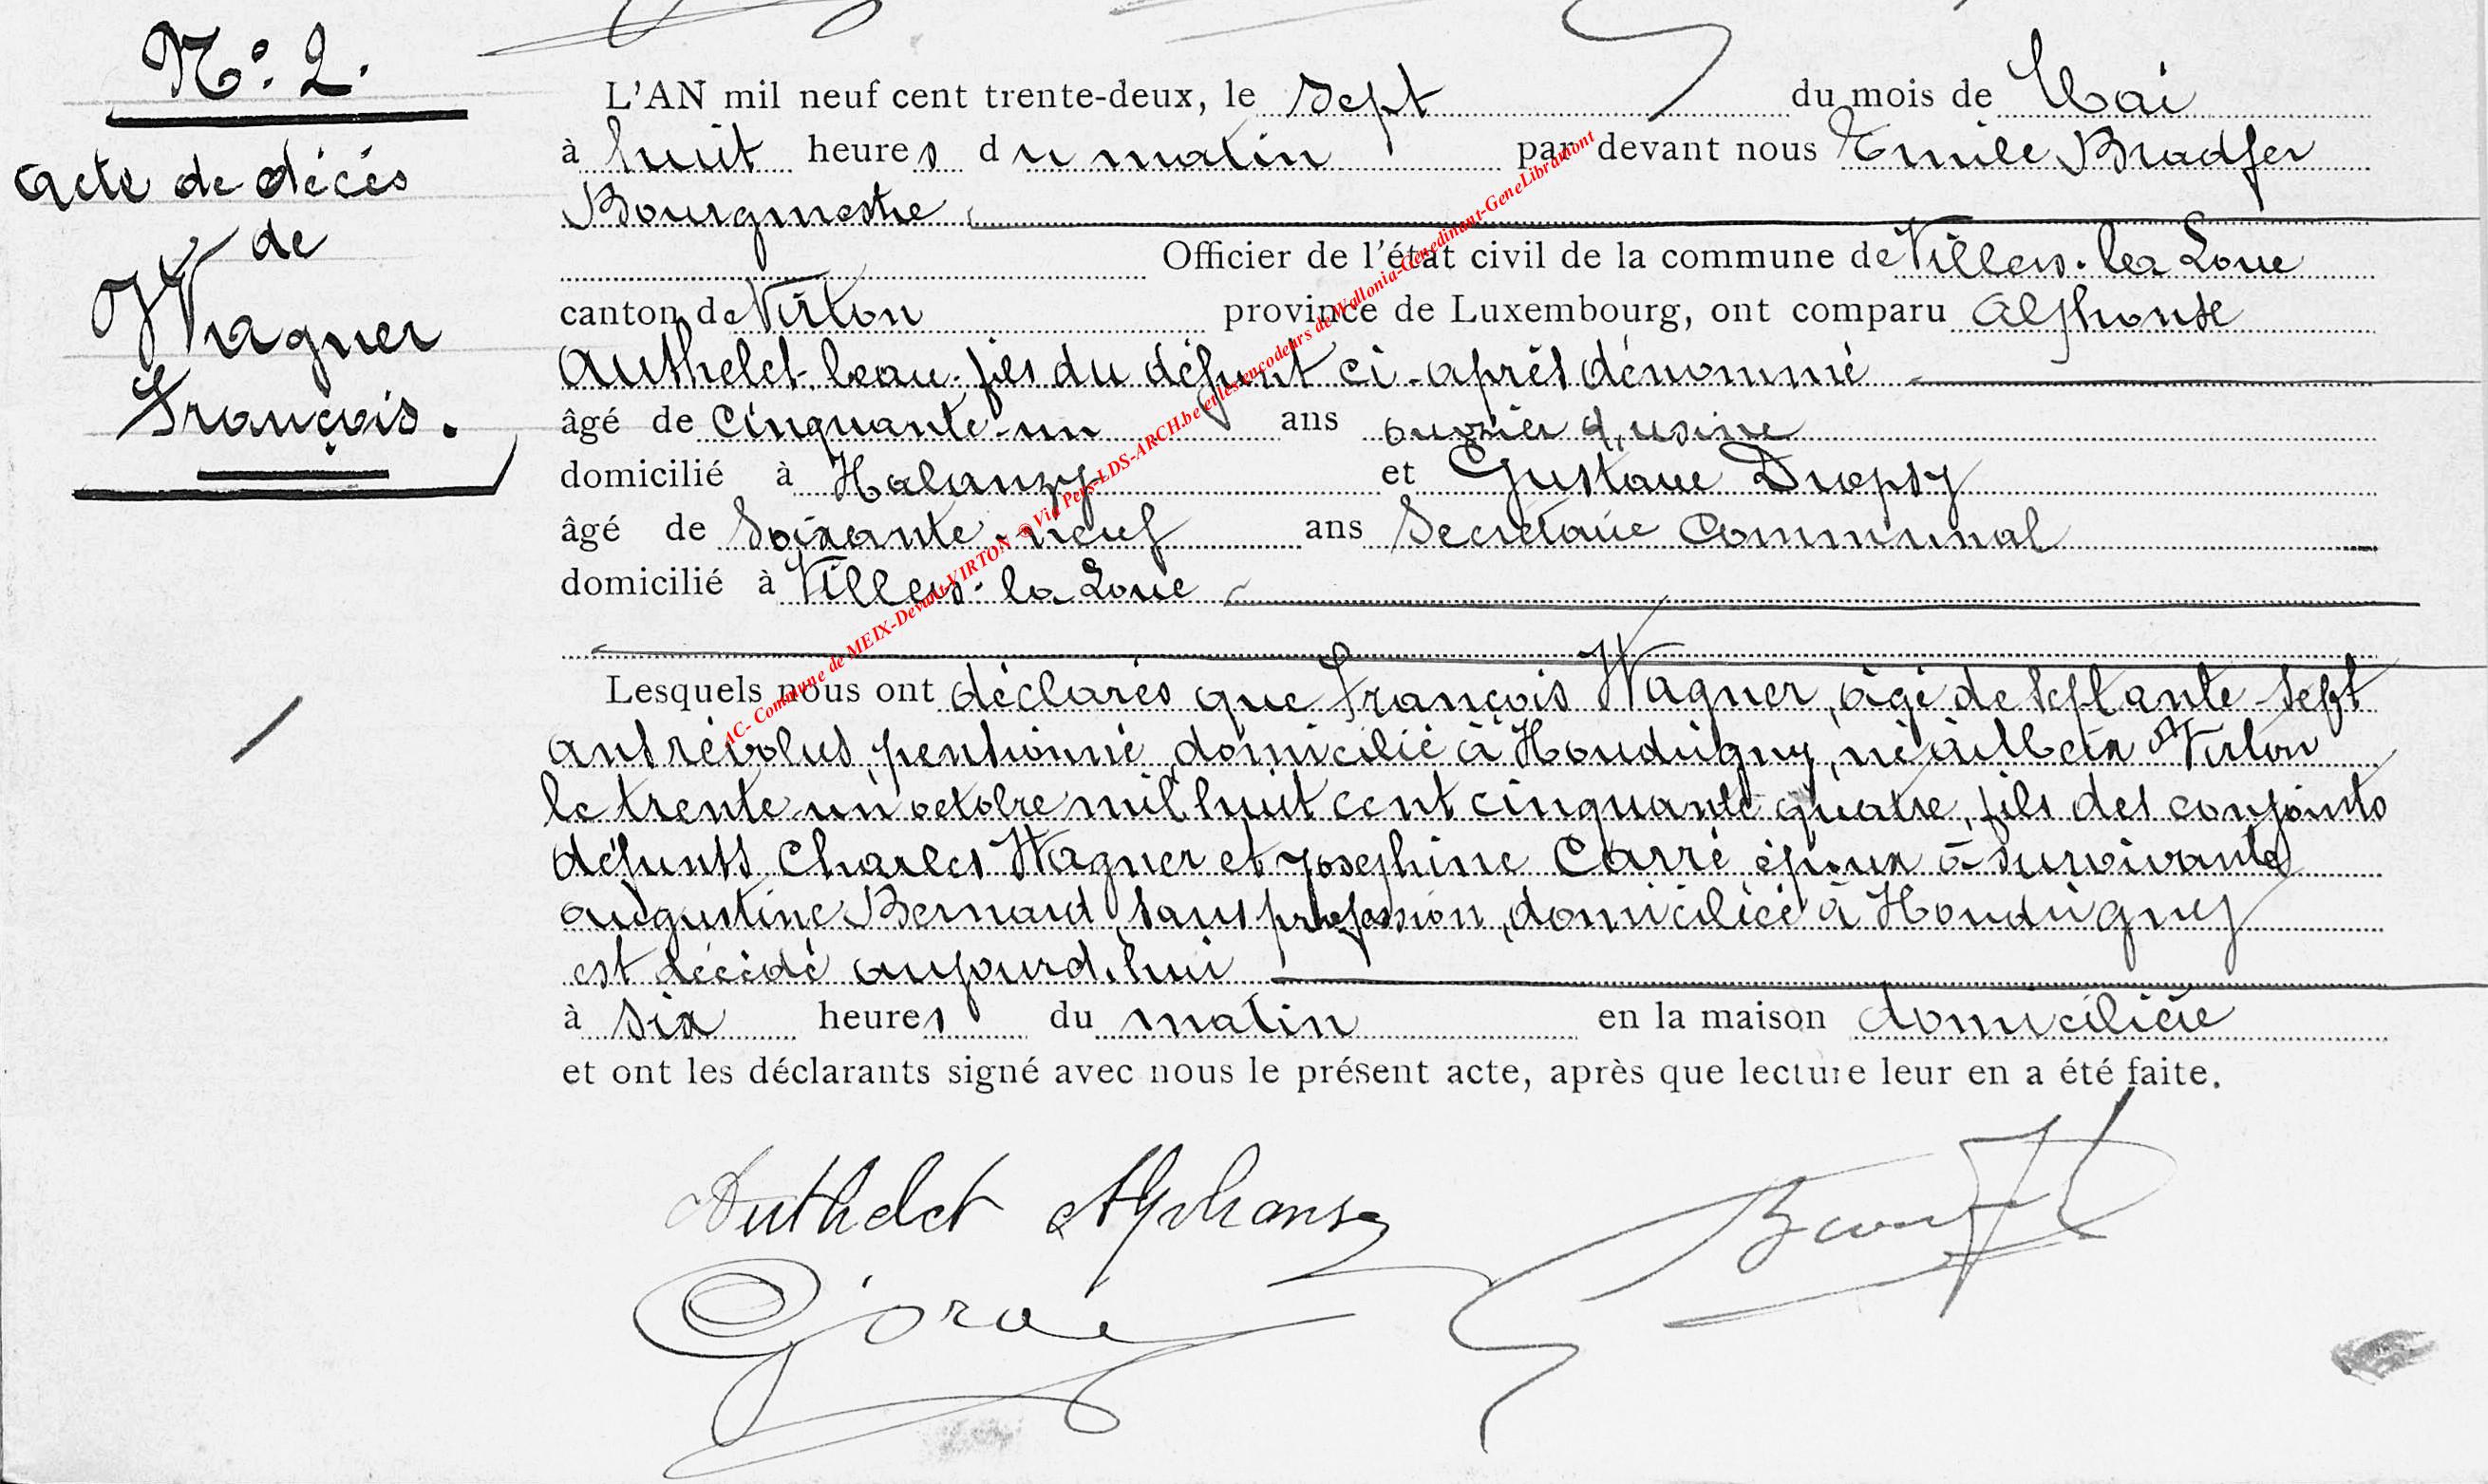 N° 2.
Acte de décès
de
Wagner
François.
L'AN mil neuf cent trente-deux, le sept du mois de Mai
à huit heures du matin par devant nous Emile Bradfer
Bourgmestre
Officier de l'état civil de la commune de Villers-la Loue
canton de Virton province de Luxembourg, ont comparu Alphonse
Authelet beau-fils du défunt ci-après dénommé
âgé de cinquante-un ans ouvrier d'usine
domicilié à Halanzy et Gustave Dropsy
âgé de soixante-neuf ans Secrétaire Communal
domicilié à Villers-la Loue
Lesquels nous ont déclarés que François Wagner, âgé de septante-sept
ans révolus, pensionné, domicilié à Houdrigny, né à Meix dt Virton
le trente-un octobre mil huit cent cinquante quatre, fils des conjoints
défunts Charles Wagner et Joséphine Carré époux à survivante
Augustine Bernard, sans profession, domiciliée à Houdrigny
est décédé aujourd'hui
à six heures du matin en la maison domiciliée
et ont les déclarants signé avec nous le présent acte, après que lecture leur en a été faite.
Authelet Alphonse
AC- Commune de MEIX-Devant-VIRTON @ Via Pers-LDS-ARCH.be et les encodeurs de Wallonia-Genedinant-GeneLibramont